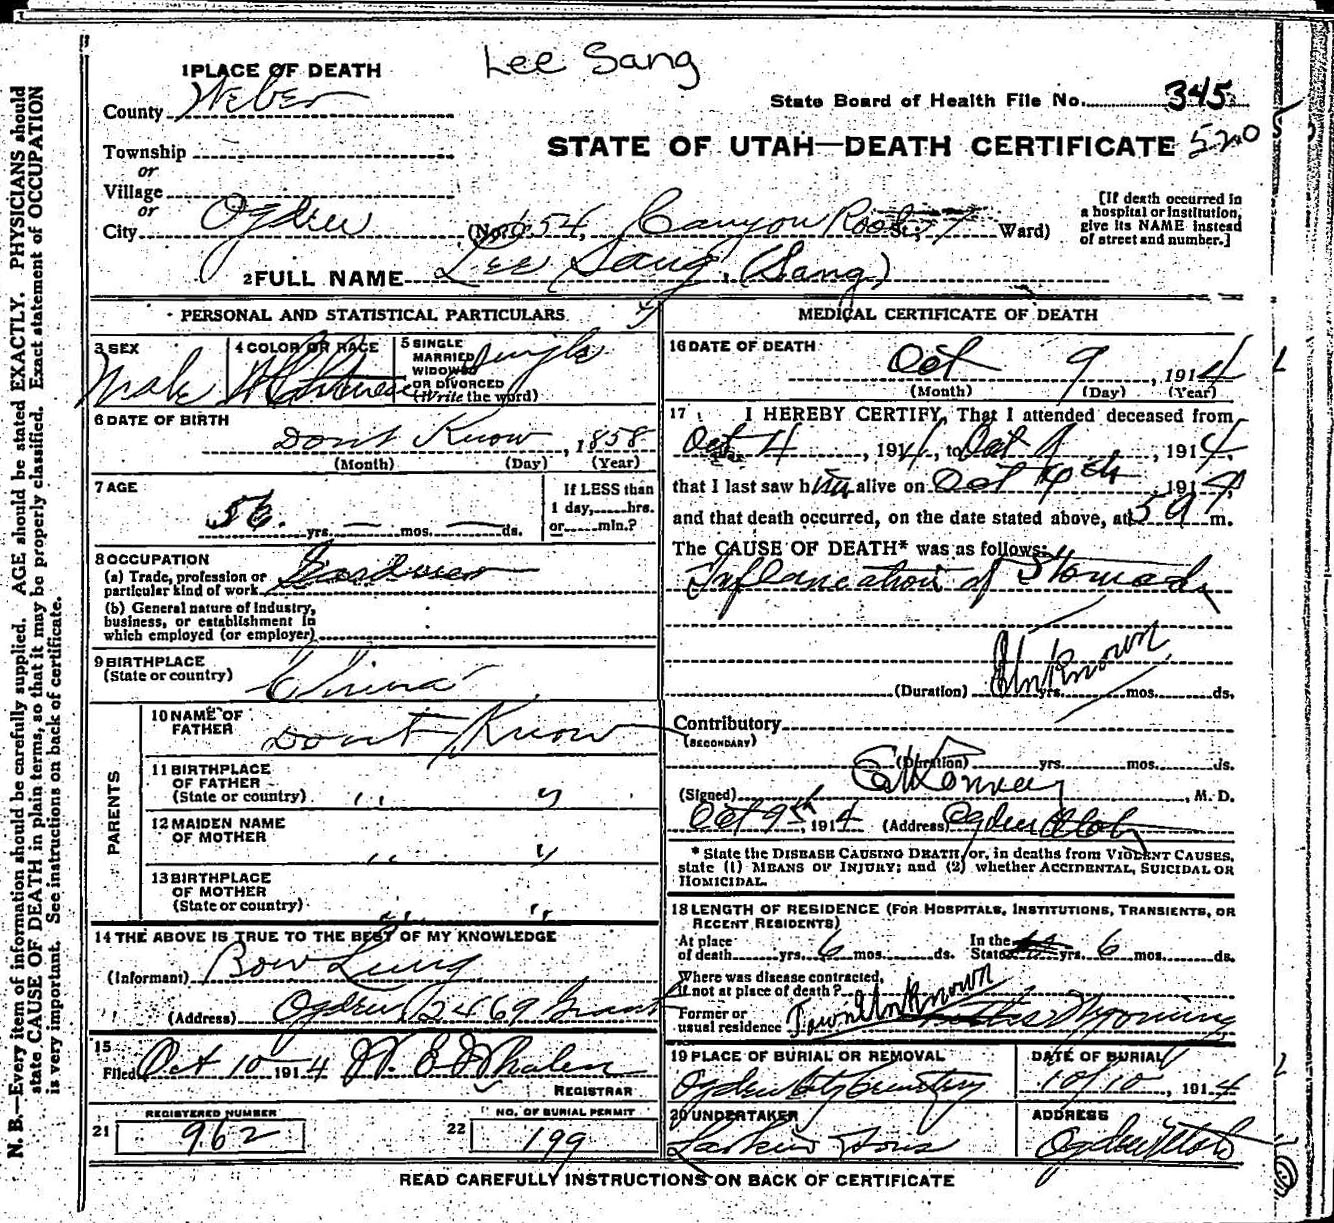 Lee Sang
1 PLACE OF DEATH
County Weber
State Board of Health File No. 345
Township
STATE OF UTAH—DEATH CERTIFICATE 520
or
Village
or
City Ogden (No. 654, Canyon Road St., Ward)
[If death occurred in a hospital or institution, give its NAME instead of street and number.]
2 FULL NAME Lee Sang, (Sang)
PERSONAL AND STATISTICAL PARTICULARS
3 SEX Male
4 COLOR OR RACE Chinese
5 SINGLE MARRIED WIDOWED OR DIVORCED (Write the word) Single
6 DATE OF BIRTH Dont Know, 1858
(Month) (Day) (Year)
7 AGE 56 yrs. — mos. — ds.
If LESS than 1 day, hrs. or min.?
8 OCCUPATION
(a) Trade, profession or particular kind of work
(b) General nature of industry, business, or establishment in which employed (or employer)
9 BIRTHPLACE (State or country) China
PARENTS
10 NAME OF FATHER Dont Know
11 BIRTHPLACE OF FATHER (State or country) " "
12 MAIDEN NAME OF MOTHER " "
13 BIRTHPLACE OF MOTHER (State or country) " "
14 THE ABOVE IS TRUE TO THE BEST OF MY KNOWLEDGE
(Informant) Bow Lung
(Address) Ogden 2469 Grant
15 Filed Oct 10 1914 W. E. Whalen
REGISTRAR
21 REGISTERED NUMBER 962
22 NO. OF BURIAL PERMIT 199
MEDICAL CERTIFICATE OF DEATH
16 DATE OF DEATH Oct 9, 1914
(Month) (Day) (Year)
17 I HEREBY CERTIFY, That I attended deceased from
Oct 4, 1914, to Oct 9, 1914,
that I last saw him alive on Oct 9th 1914,
and that death occurred, on the date stated above, at m.
The CAUSE OF DEATH* was as follows:
Inflamation of Stomach
(Duration) Unknown yrs. mos. ds.
Contributory
(SECONDARY)
(Duration) yrs. mos. ds.
(Signed) , M. D.
Oct 9th, 1914 (Address) Ogden Utah
* State the DISEASE CAUSING DEATH, or, in deaths from VIOLENT CAUSES, state (1) MEANS OF INJURY; and (2) whether ACCIDENTAL, SUICIDAL OR HOMICIDAL.
18 LENGTH OF RESIDENCE (FOR HOSPITALS, INSTITUTIONS, TRANSIENTS, OR RECENT RESIDENTS)
At place of death yrs. 6 mos. ds. In the State yrs. 6 mos. ds.
Where was disease contracted, if not at place of death?
Former or usual residence Town Unknown Wyoming
19 PLACE OF BURIAL OR REMOVAL Ogden City Cemetery
DATE OF BURIAL 10/10, 1914
20 UNDERTAKER Larkin & Sons
ADDRESS Ogden Utah
READ CAREFULLY INSTRUCTIONS ON BACK OF CERTIFICATE
N. B.—Every item of information should be carefully supplied. AGE should be stated EXACTLY. PHYSICIANS should
state CAUSE OF DEATH in plain terms, so that it may be properly classified. Exact statement of OCCUPATION
is very important. See instructions on back of certificate.